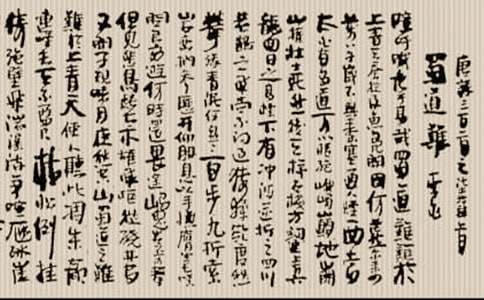 唐詩三百首之
蜀道難 李白
噫吁嚱危乎高哉蜀道之難難於
上青天蠶叢及魚鳧開國何茫然爾來
四萬八千歲不與秦塞通人煙西當
太白有鳥道可以橫絕峨嵋巔地崩
山摧壯士死然後天梯石棧方鉤連上有
六龍回日之高標下有衝波逆折之回川
黃鶴之飛尚不得過猿猱欲度愁
攀緣青泥何盤盤百步九折縈
岩巒捫參歷井仰脅息以手撫膺坐長嘆
問君西遊何時還畏途巉岩不可攀
但見悲鳥號古木雄飛雌從繞林間
又聞子規啼夜月愁空山蜀道之難
難於上青天使人聽此凋朱顏
連峰去天不盈尺枯松倒掛
倚絕壁飛湍瀑流爭喧豗砯崖